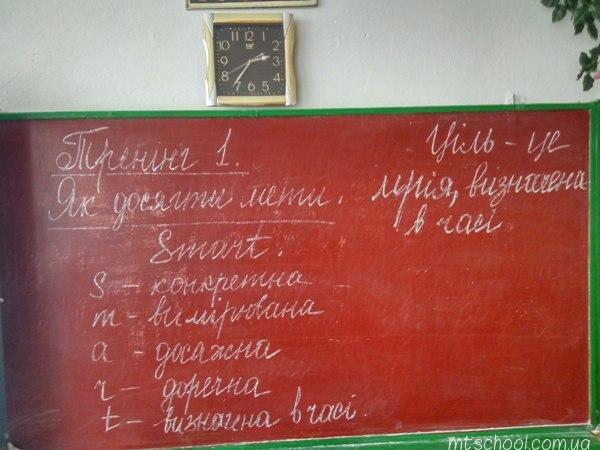 12
11
1
10
2
9
3
8
4
7
5
6
Тренінг 1.
Як досягти мети.
Smart.
S – конкретна
m – вимірювана
a – досяжна
r – доречна
t – визначена в часі.
Ціль – це
мрія, визначена
в часі
mtschool.com.ua